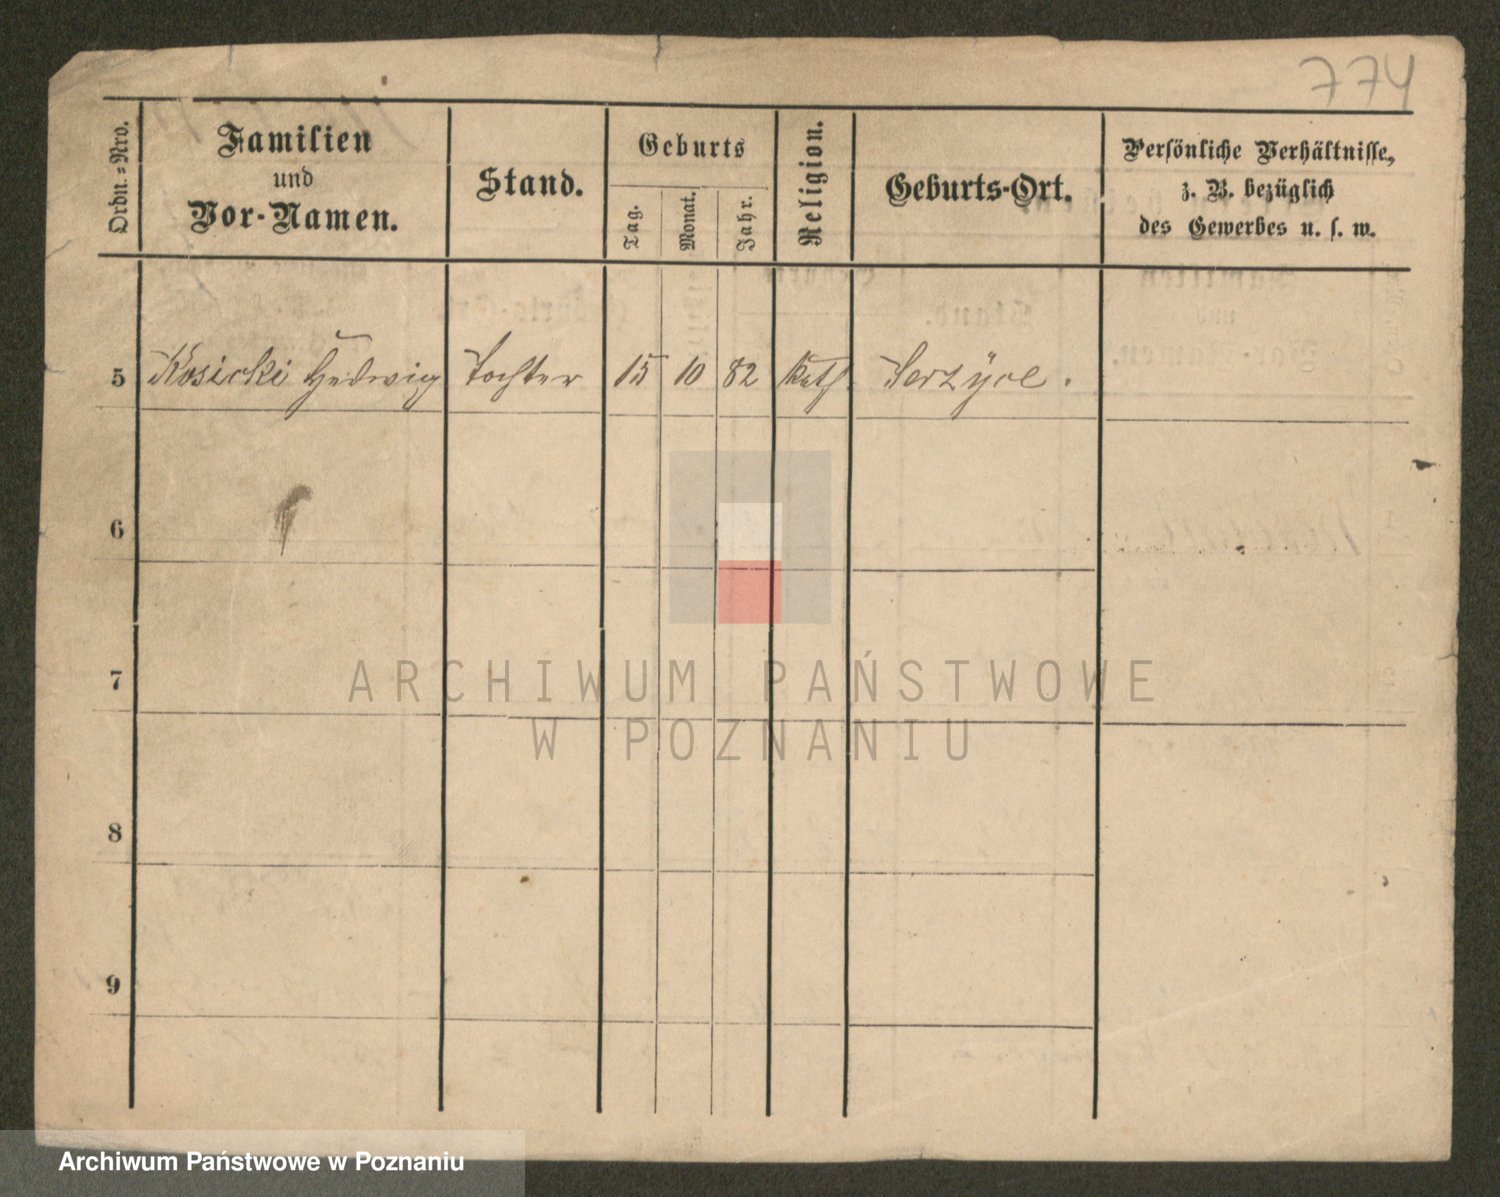 774
Ordn.-Nro.
Familien
und
Vor-Namen.
Stand.
Geburts
Tag.
Monat.
Jahr.
Religion.
Geburts-Ort.
Persönliche Verhältnisse,
z. B. bezüglich
des Gewerbes u. s. w.
5 Kosicki Hedwig Tochter 15 10 82 kath Jerzyce.
6
7
ARCHIWUM PAŃSTWOWE
W POZNANIU
8
9
Archiwum Państwowe w Poznaniu